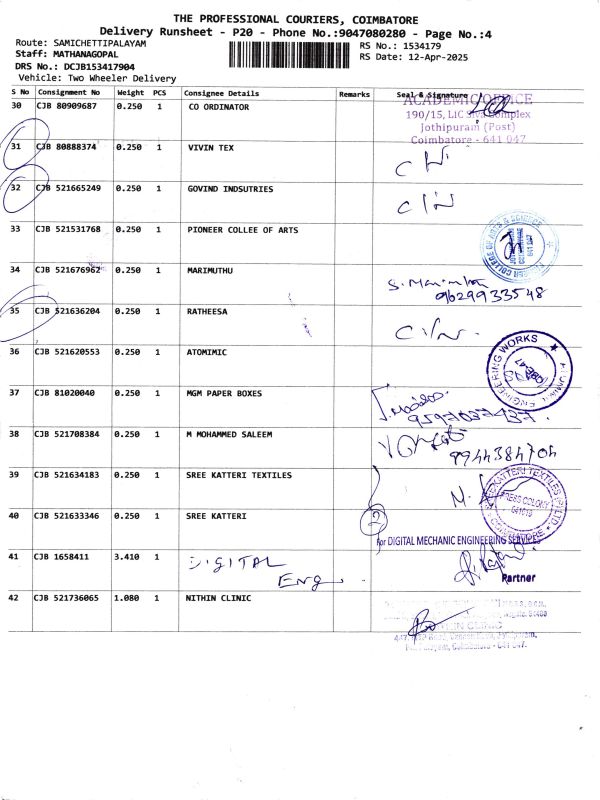 THE PROFESSIONAL COURIERS, COIMBATORE
Delivery Runsheet - P20 - Phone No.:9047080280 - Page No.:4
Route: SAMICHETTIPALAYAM
RS No.: 1534179
Staff: MATHANAGOPAL
RS Date: 12-Apr-2025
DRS No.: DCJB153417904
Vehicle: Two Wheeler Delivery
S No Consignment No Weight PCS Consignee Details Remarks Seal & Signature
30 CJB 80909687 0.250 1 CO ORDINATOR
ACADEMIC OFFICE
190/15, LIC Siva Complex
Jothipuram (Post)
Coimbatore - 641 047
31 CJB 80888374 0.250 1 VIVIN TEX
32 CJB 521665249 0.250 1 GOVIND INDSUTRIES
33 CJB 521531768 0.250 1 PIONEER COLLEE OF ARTS
34 CJB 521676962 0.250 1 MARIMUTHU
9629933548
35 CJB 521636204 0.250 1 RATHEESA
36 CJB 521620553 0.250 1 ATOMIMIC
ENGINEERING WORKS
37 CJB 81020040 0.250 1 MGM PAPER BOXES
38 CJB 521708384 0.250 1 M MOHAMMED SALEEM
9944384704
39 CJB 521634183 0.250 1 SREE KATTERI TEXTILES
PRESS COLONY
641019
40 CJB 521633346 0.250 1 SREE KATTERI
2
For DIGITAL MECHANIC ENGINEERING SERVICES
41 CJB 1658411 3.410 1 DIGITAL
ENG
Partner
42 CJB 521736065 1.080 1 NITHIN CLINIC